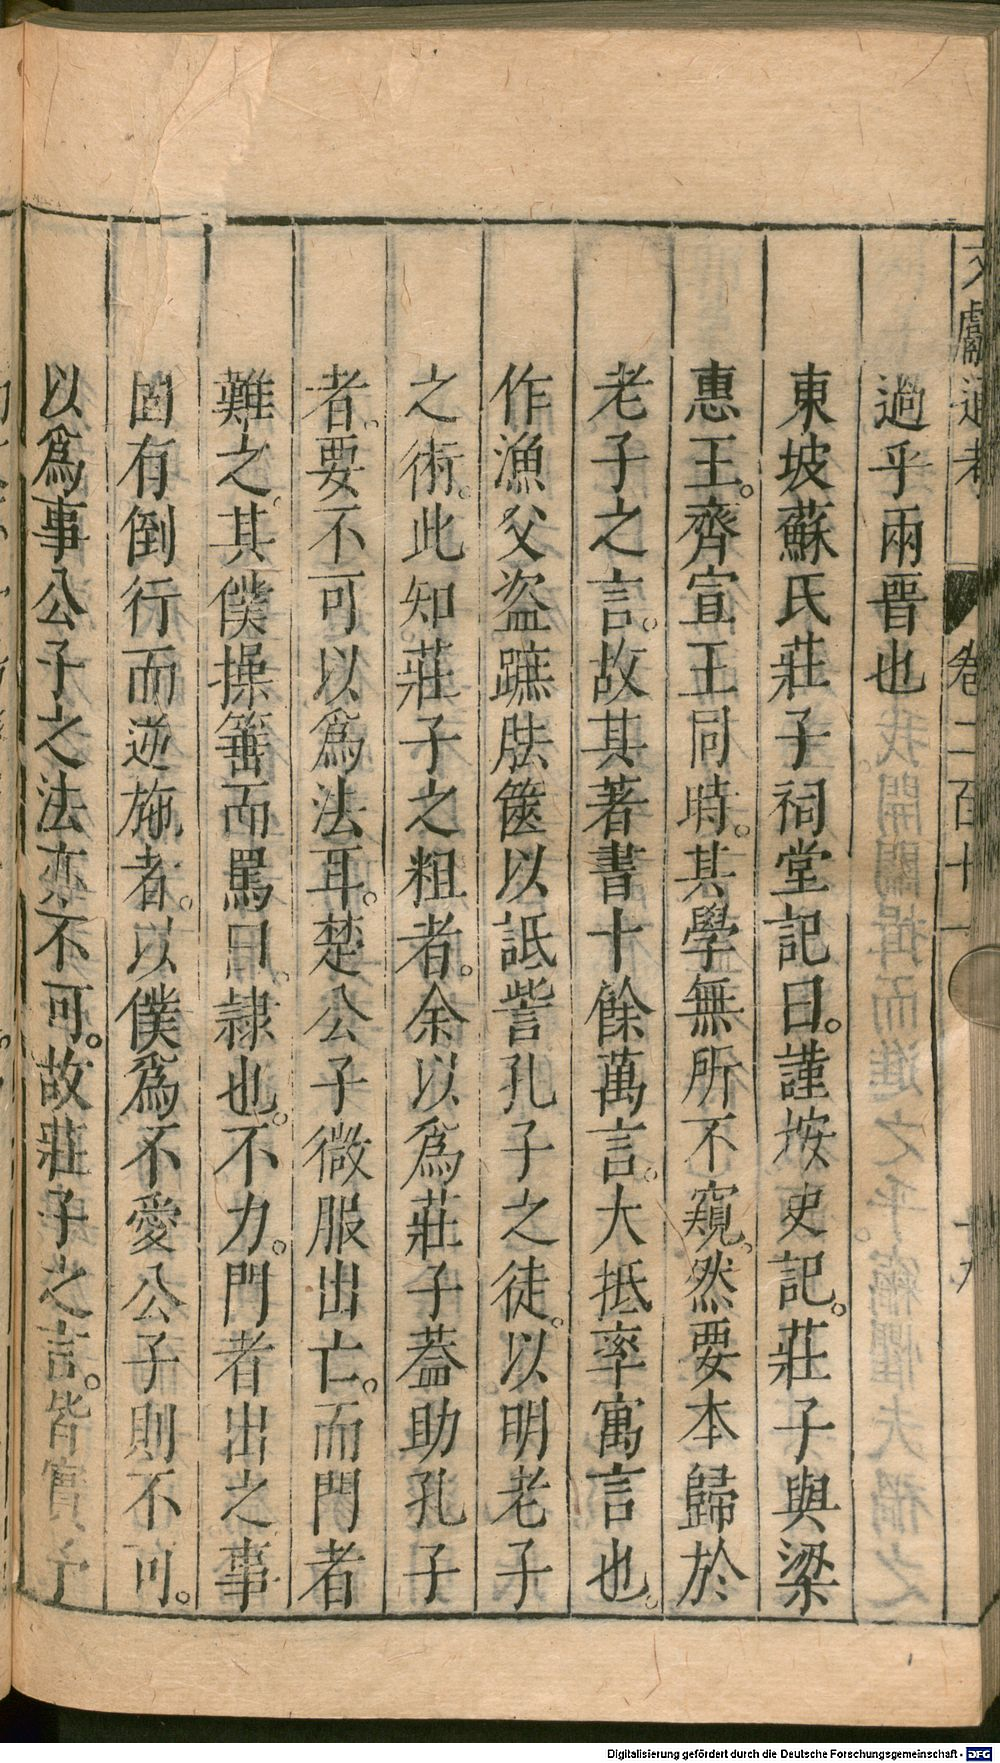 文獻通考 卷二百十一 十九
過乎兩晉也
東坡蘇氏莊子祠堂記曰。謹按史記。莊子與梁
惠王。齊宣王同時。其學無所不窺。然要本歸於
老子之言。故其著書十餘萬言。大抵率寓言也。
作漁父盜蹠胠篋以詆訾孔子之徒。以明老子
之術。此知莊子之粗者。余以爲莊子蓋助孔子
者。要不可以爲法耳。楚公子微服出亡。而門者
難之。其僕操箠而罵曰。隷也。不力。門者出之事
固有倒行而逆施者。以僕爲不愛公子則不可。
以爲事公子之法亦不可。故莊子之言。皆實予
Digitalisierung gefördert durch die Deutsche Forschungsgemeinschaft - DFG